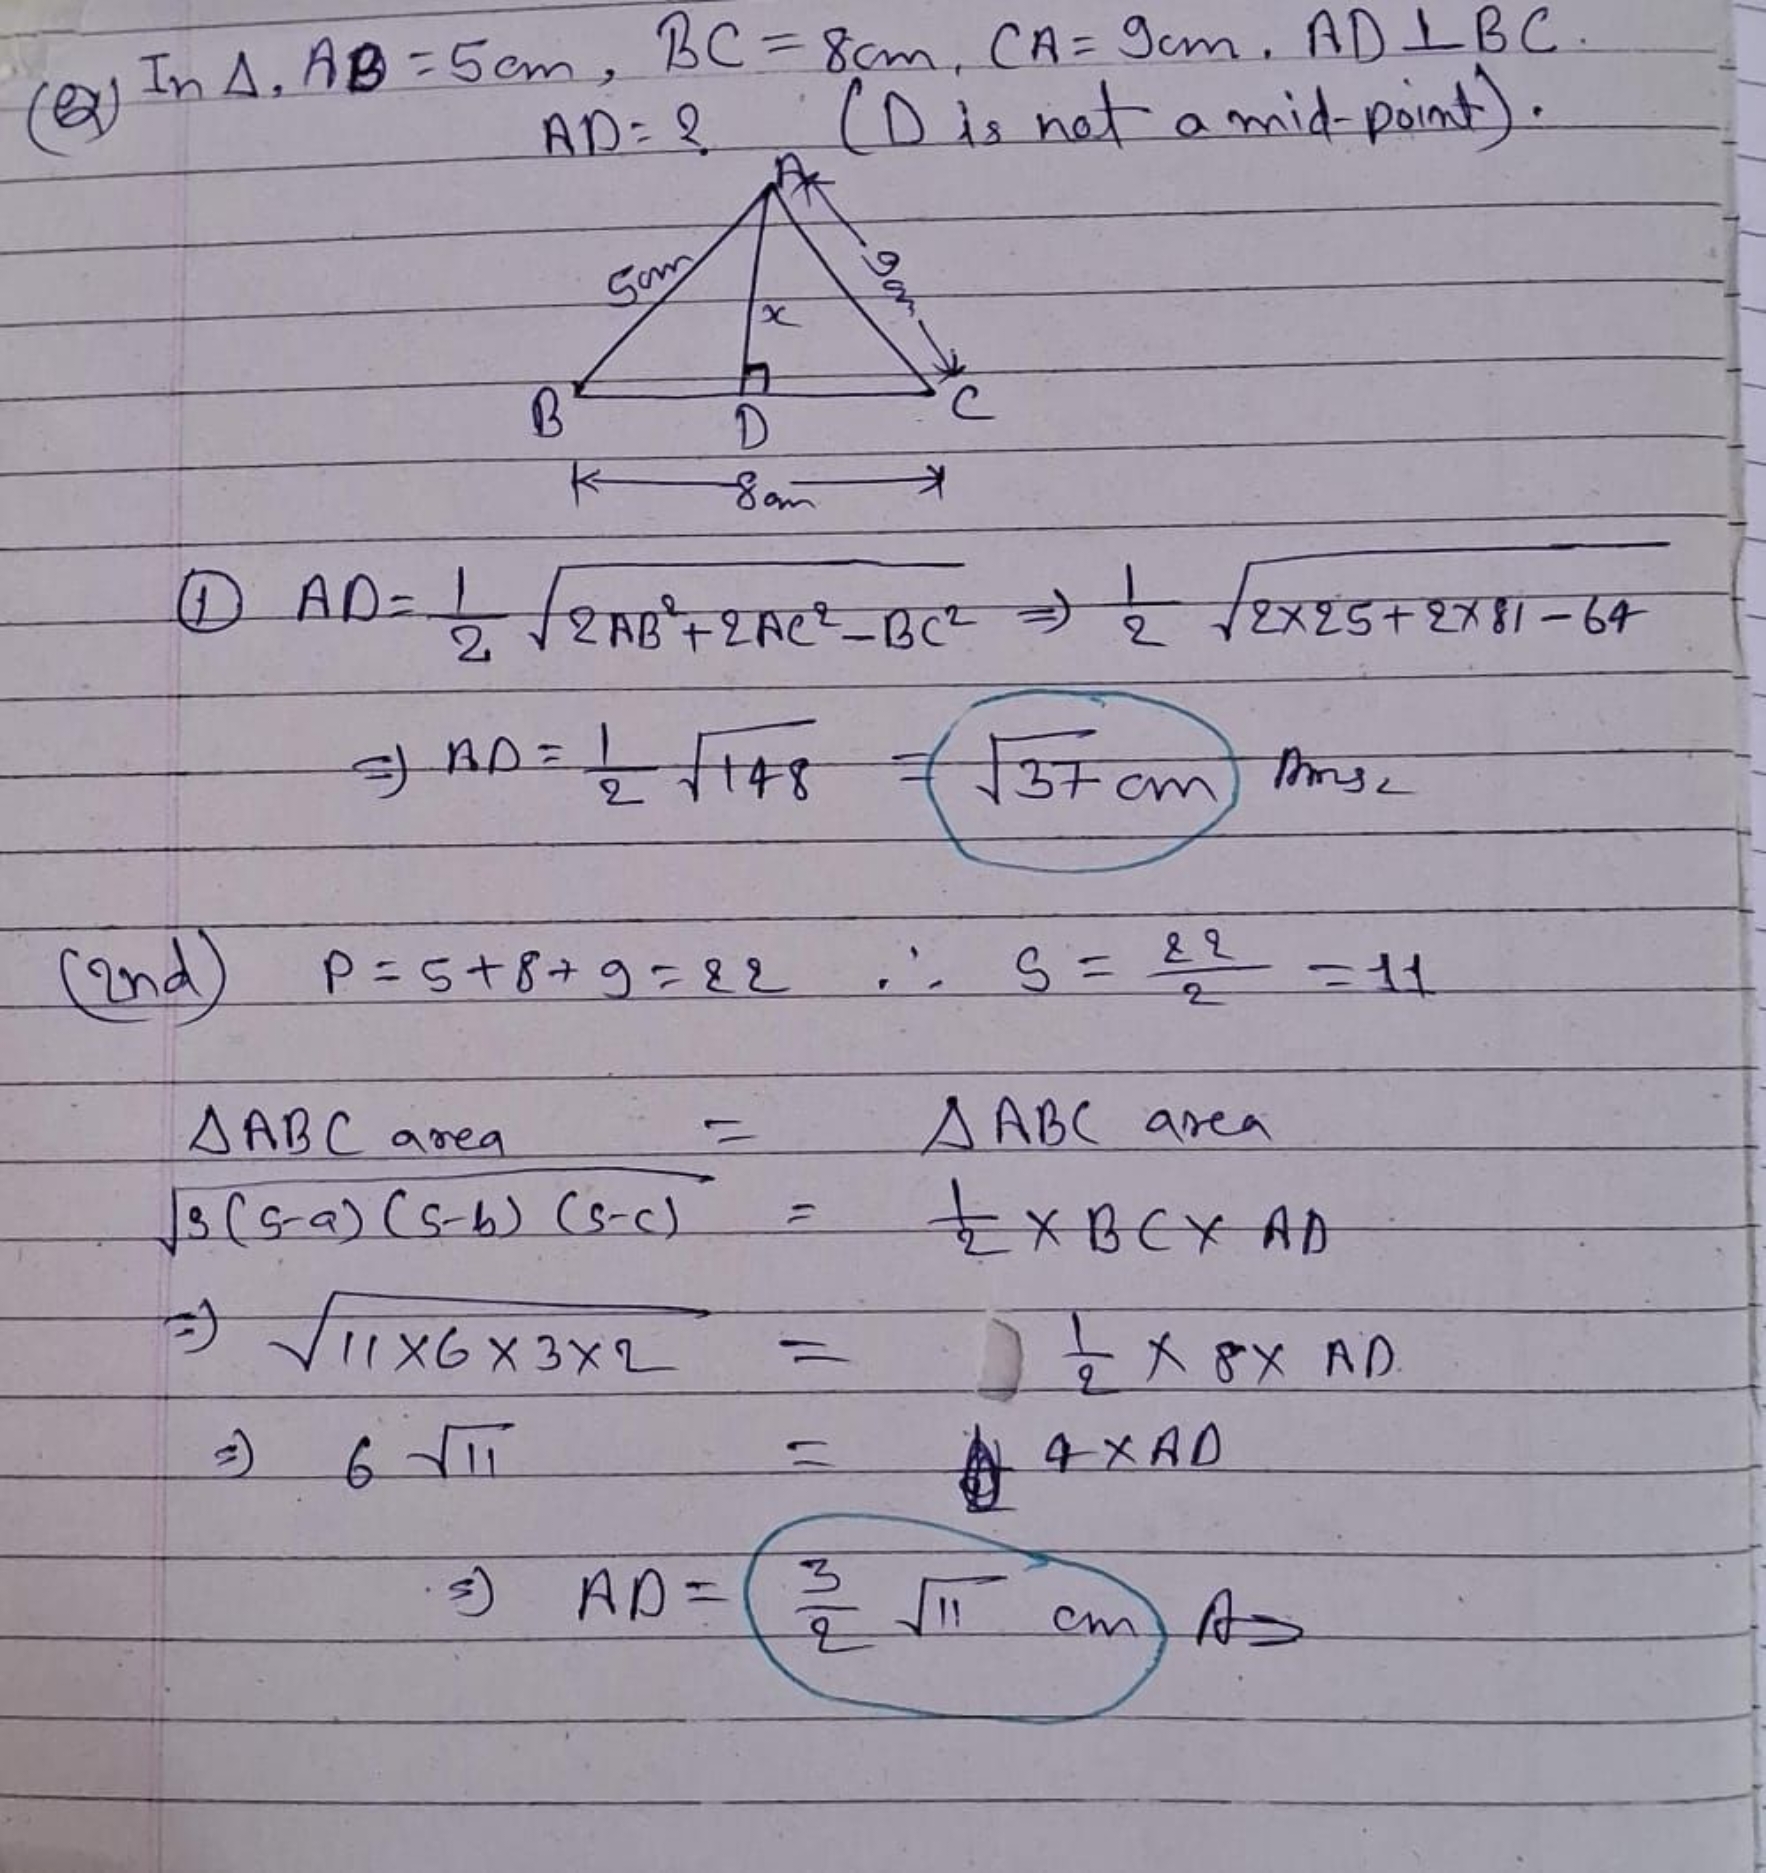 (Q) In Δ, AB = 5cm, BC = 8cm, CA = 9cm. AD ⊥ BC.
AD = ? (D is not a mid-point).
A
5cm
9cm
x
B
D
C
8cm
① AD = 1/2 √(2AB² + 2AC² - BC²) ⇒ 1/2 √(2×25 + 2×81 - 64)
⇒ AD = 1/2 √148 = √37 cm Ans
(2nd) P = 5+8+9 = 22 ∴ S = 22/2 = 11
Δ ABC area = Δ ABC area
√(s(s-a)(s-b)(s-c)) = 1/2 × BC × AD
⇒ √(11×6×3×2) = 1/2 × 8 × AD.
⇒ 6 √11 = 4 × AD
⇒ AD = 3/2 √11 cm